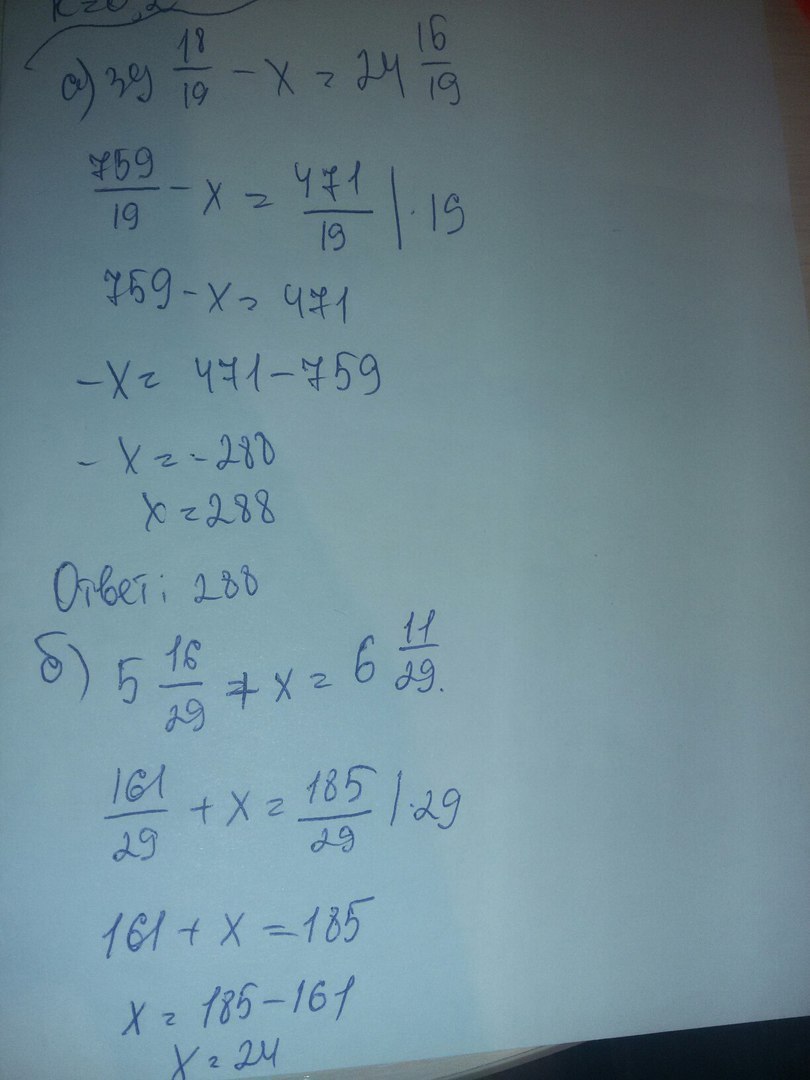 а) 39 18/19 - x = 24 16/19
759/19 - x = 471/19 | · 19
759 - x = 471
-x = 471 - 759
- x = -288
x = 288
Ответ: 288
б) 5 16/29 + x = 6 11/29.
161/29 + x = 185/29 | · 29
161 + x = 185
x = 185 - 161
x = 24